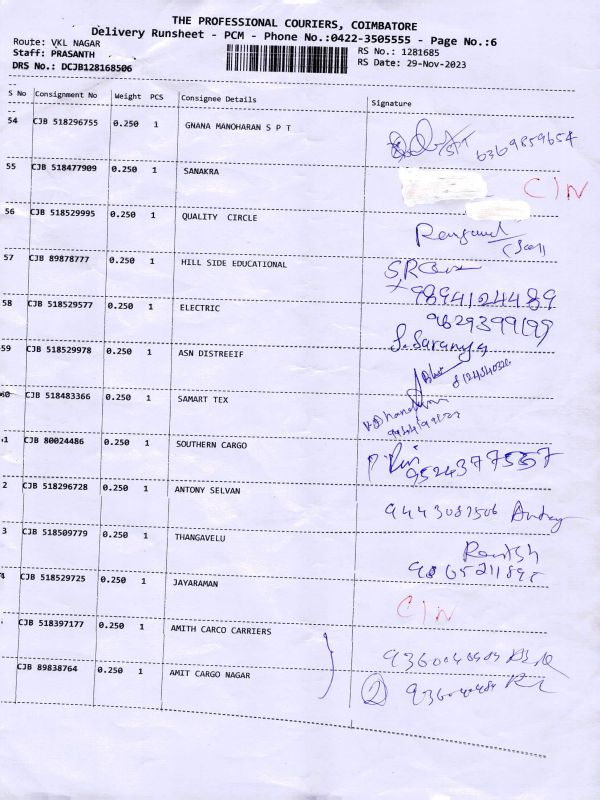 THE PROFESSIONAL COURIERS, COIMBATORE
Delivery Runsheet - PCM - Phone No.:0422-3505555 - Page No.:6
Route: VKL NAGAR
Staff: PRASANTH
DRS No.: DCJB128168506
RS No.: 1281685
RS Date: 29-Nov-2023
S No Consignment No Weight PCS Consignee Details Signature
54 CJB 518296755 0.250 1 GNANA MANOHARAN S P T
SPT 6369859654
55 CJB 518477909 0.250 1 SANAKRA
C/N
56 CJB 518529995 0.250 1 QUALITY CIRCLE
57 CJB 89878777 0.250 1 HILL SIDE EDUCATIONAL
9894124489
58 CJB 518529577 0.250 1 ELECTRIC
9629399199
S. Saranya
59 CJB 518529978 0.250 1 ASN DISTREEIF
60 CJB 518483366 0.250 1 SAMART TEX
1 CJB 80024486 0.250 1 SOUTHERN CARGO
9524377557
2 CJB 518296728 0.250 1 ANTONY SELVAN
9443087506 Antony
3 CJB 518509779 0.250 1 THANGAVELU
4 CJB 518529725 0.250 1 JAYARAMAN
C/N
CJB 518397177 0.250 1 AMITH CARCO CARRIERS
CJB 89838764 0.250 1 AMIT CARGO NAGAR
2